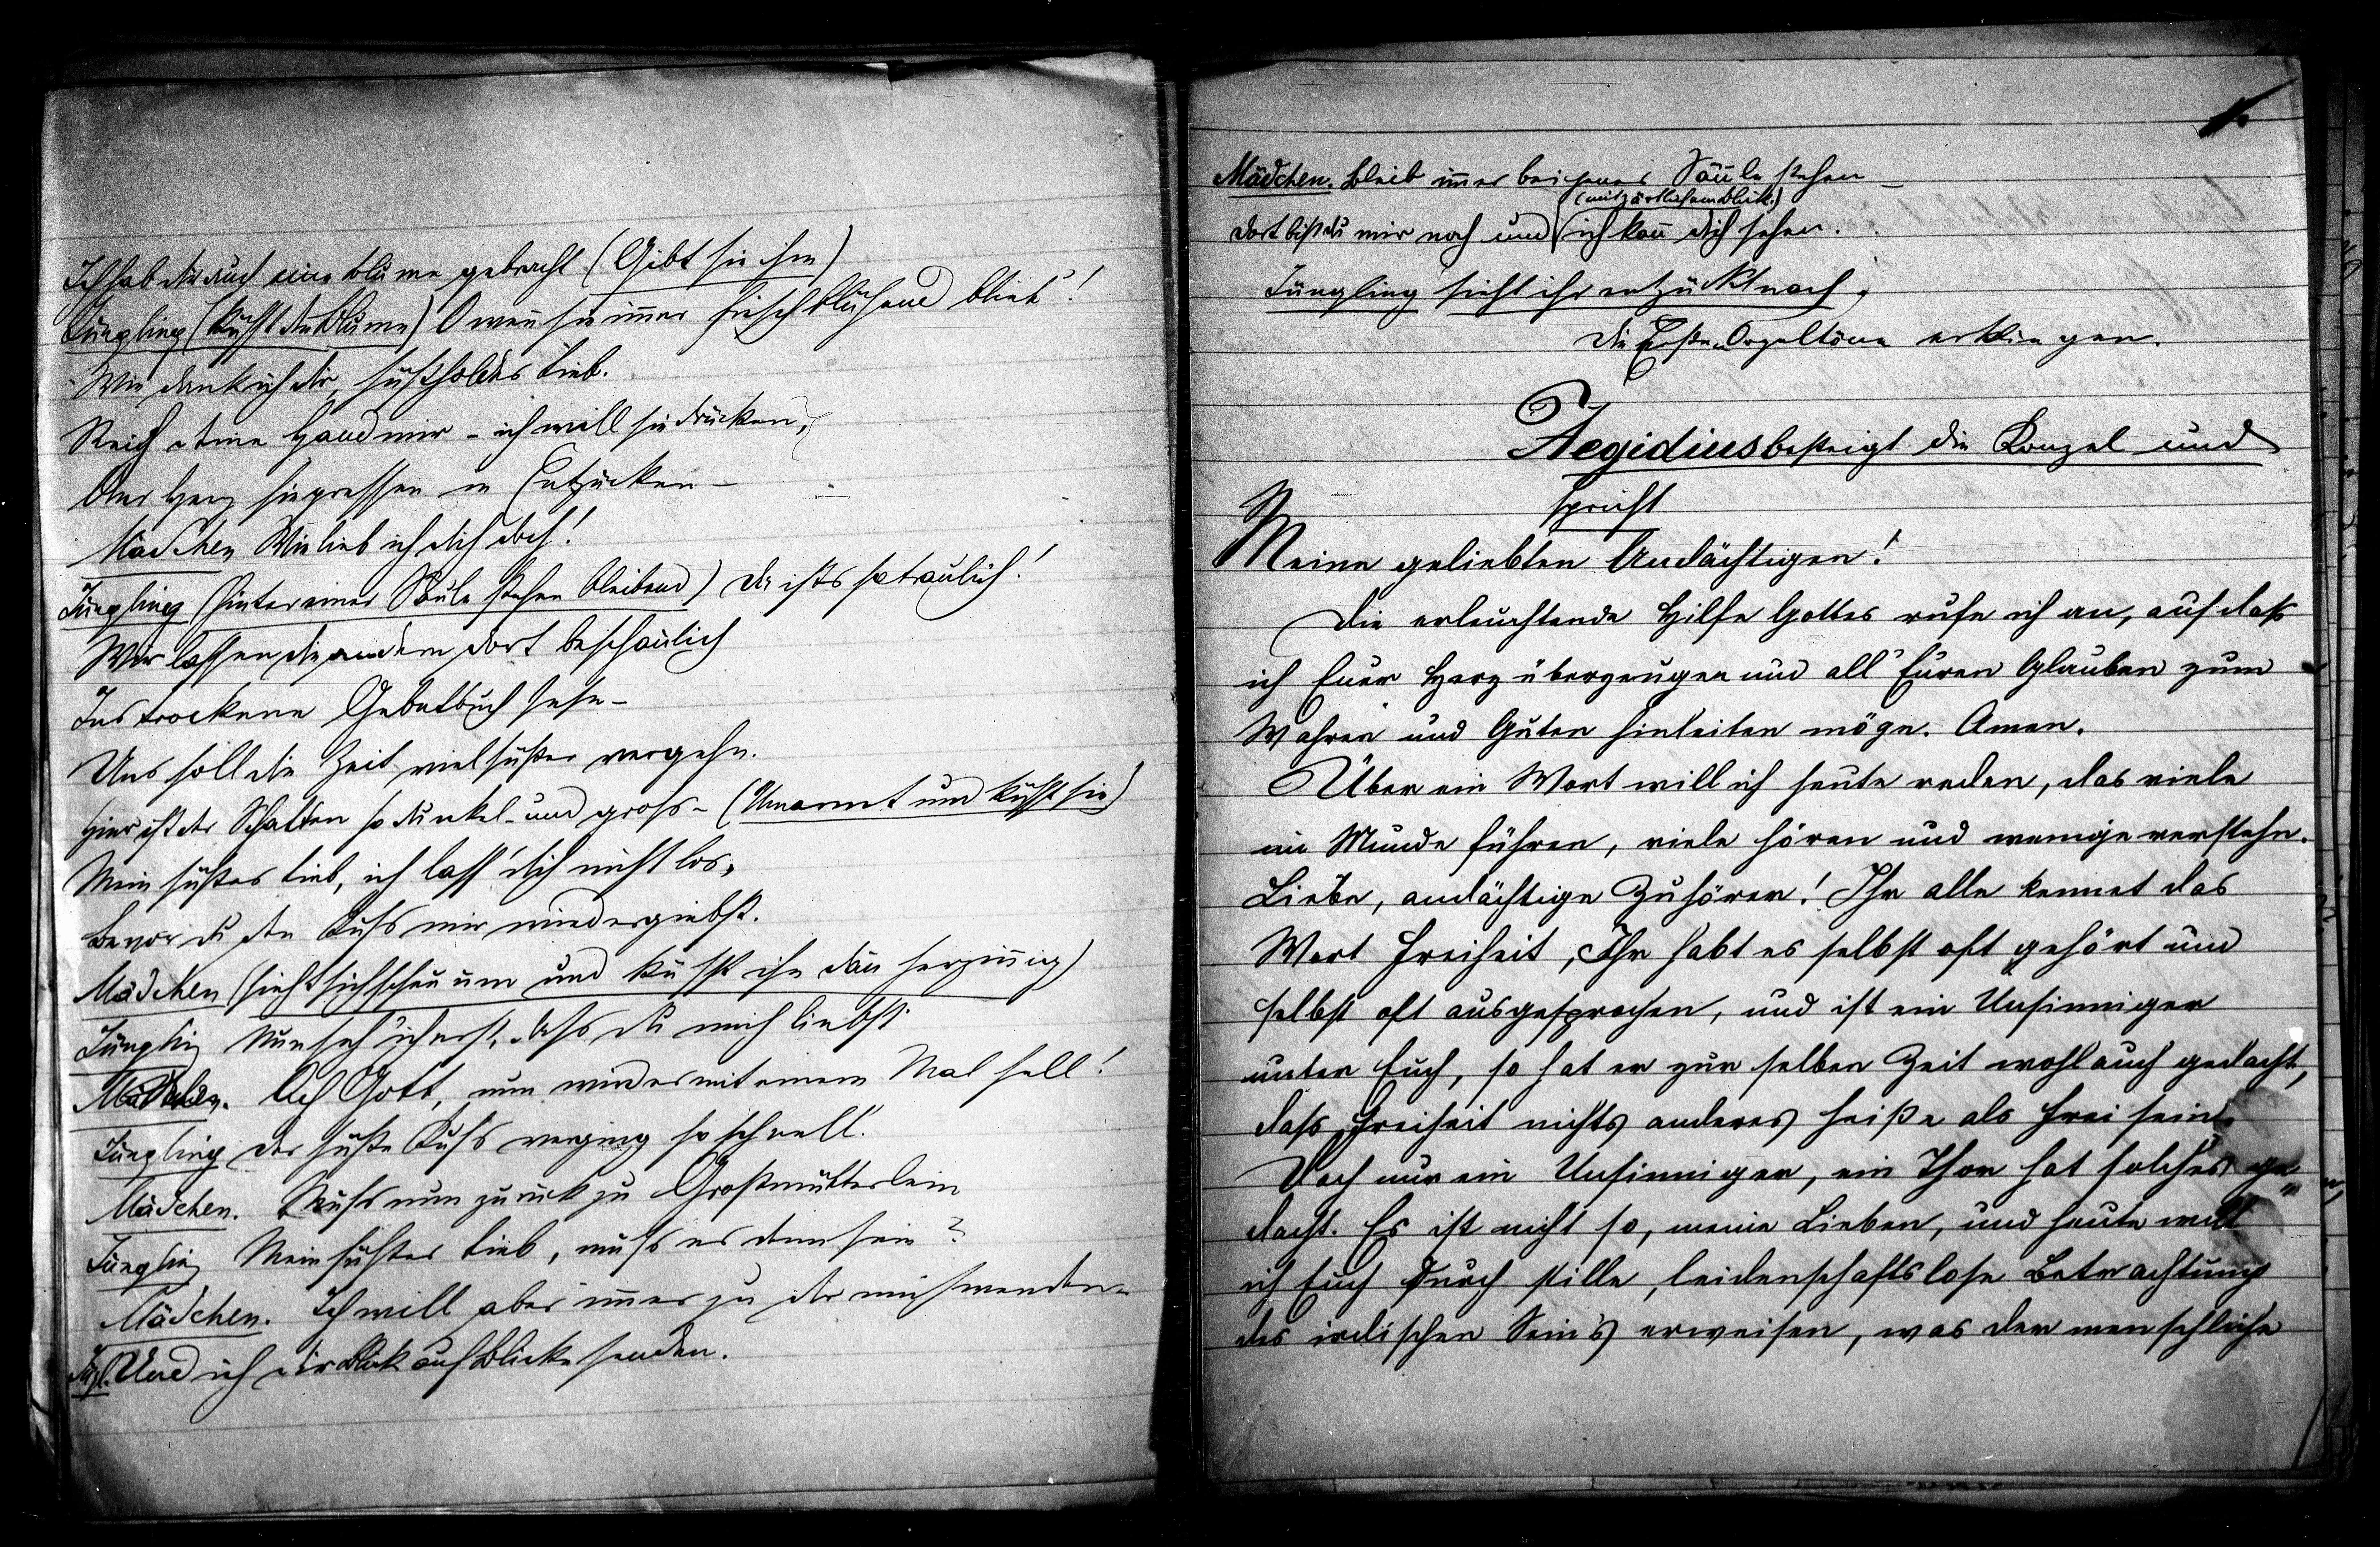 Ich hab dir auch eine Blume gebracht (Gibt sie ihm)
Jüngling (küsst die Blume) O wenn sie immer frisch blühend blieb'!
Wie dank ich dir, süßholdes Lieb.
Reich deine Hand mir - ich will sie drücken,
Ans Herz sie pressen in Entzücken -
Mädchen Wie lieb ich dich doch!
Jüngling (hinter einer Säule stehen bleibend) Da ists so traulich!
Wir lassen die andern dort beschaulich
Ins trockene Gebetbuch sehn -
Uns soll die Zeit viel süßer vergehn.
Hier ist der Schatten so dunkel und gross - (Umarmt und küsst sie)
Mein süßes Lieb, ich lass' dich nicht los,
Bevor du den Kuss mir wiedergiebst.
Mädchen (sieht sich scheu um und küsst ihn dann herzinnig)
Jüngling Nun seh' ich erst, dass du mich liebst.
Mädchen. Ach Gott, nun wird es mit einem Mal hell!
Jüngling der süße Kuss verging so schnell.
Mädchen. Muss nun zurück zu Großmütterlein
Jüngling Mein süßes Lieb, muss es denn sein?
Mädchen. Ich will aber immer zu dir mich wenden -
Jgl. Und ich dir Blick auf Blicke senden.
Mädchen. Bleib immer bei jener Säule stehen -
(mit zärtlichem Blick.)
dort bist du mir nah und ich kann dich sehen.
Jüngling sieht ihr entzückt nach;
Die Erste Orgeltöne erklingen.
Aegidius besteigt die Kanzel und
spricht
Meine geliebten Andächtigen!
Die erleuchtende Hilfe Gottes rufe ich an, auf dass
ich Euer Herz überzeugen und all' Euren Glauben zum
Wahren und Guten hinleiten möge. Amen.
Über ein Wort will ich heute reden, das viele
im Munde führen, viele hören und wenige verstehn.
Liebe, andächtige Zuhörer! Ihr alle kennet das
Wort Freiheit, Ihr habt es selbst oft gehört und
selbst oft ausgesprochen, und ist ein Unsinniger
unter Euch, so hat er zur selben Zeit wohl auch gedacht,
dass Freiheit nichts anderes heiße als frei sein.
Doch nur ein Unsinniger, ein Thor hat solches ge„
dacht. Es ist nicht so, meine Lieben, und heute will
ich Euch durch stille, leidenschaftslose Betrachtung
des irdischen Sein's erweisen, was der menschliche